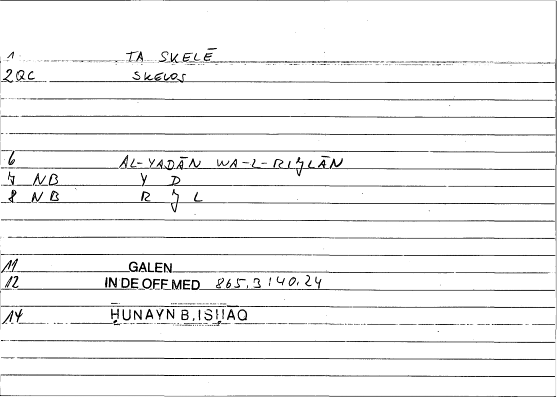 1 TA SKELĒ
2 QC SKELOS
6 AL-YADĀN WA-L-RIǦLĀN
7 NB Y D
8 NB R Ǧ L
11 GALEN
12 IN DE OFF MED 865.3 140.24
14 ḤUNAYN B. ISḤAQ